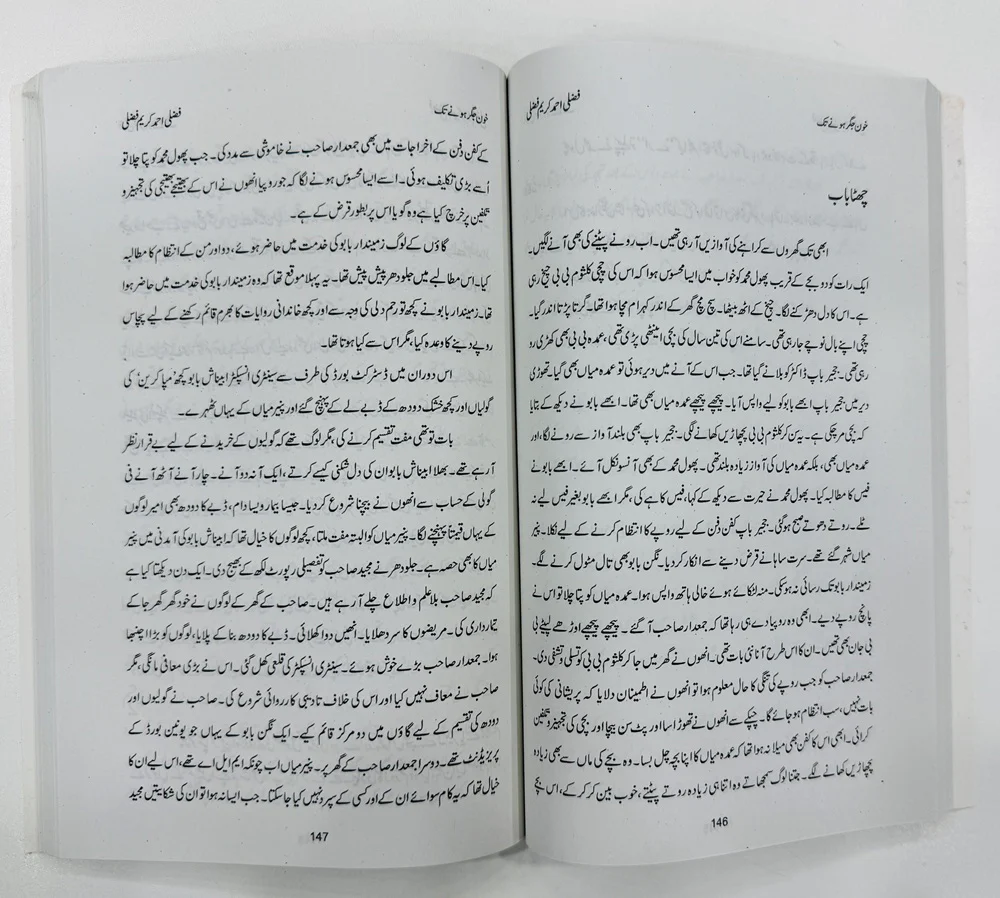 خون جگر ہونے تک
فضلی احمد کریم فضلی
چھٹا باب
ابھی تک گھروں سے کراہنے کی آوازیں آ رہی تھیں۔ اب رونے پیٹنے کی بھی آنے لگیں۔
ایک رات کو دو بجے کے قریب پھول محمد کو خواب میں ایسا محسوس ہوا کہ اس کی چچی کلثوم بی بی چیخ رہی
ہے۔ اس کا دل دھڑکنے لگا۔ چیخ کے اٹھ بیٹھا۔ سچ مچ گھر کے اندر کہرام مچا ہوا تھا۔ گرتا پڑتا اندر گیا۔
چچی اپنے بال نوچے جا رہی تھی۔ سامنے اس کی تین سال کی بچی اینٹھی پڑی تھی، عمدہ بی بی بھی کھڑی رو
رہی تھی۔ ججیر باپ ڈاکٹر کو بلانے گیا تھا۔ جب اس کے آنے میں دیر ہوئی تو عمدہ میاں بھی گیا۔ تھوڑی
دیر میں ججیر باپ ابھے بابو کو لیے واپس آیا۔ پیچھے پیچھے عمدہ میاں بھی تھا۔ ابھے بابو نے دیکھ کے بتایا
کہ بچی مر چکی ہے۔ یہ سن کر کلثوم بی بی پچھاڑیں کھانے لگی۔ ججیر باپ بھی بلند آواز سے رونے لگا، اور
عمدہ میاں بھی، بلکہ عمدہ میاں کی آواز زیادہ بلند تھی۔ پھول محمد کے بھی آنسو نکل آئے۔ ابھے بابو نے
فیس کا مطالبہ کیا۔ پھول محمد نے حیرت سے دیکھ کے کہا، فیس کاہے کی، مگر ابھے بابو بغیر فیس لیے نہ
ٹلے۔ روتے دھوتے صبح ہو گئی۔ ججیر باپ کفن دفن کے لیے روپے کا انتظام کرنے کے لیے نکلا۔ پنیر
میاں شہر گئے تھے۔ سرت ساہا نے قرض دینے سے انکار کر دیا۔ نگن بابو بھی ٹال مٹول کرنے لگے۔
زمیندار بابو تک رسائی نہ ہو سکی۔ منہ لٹکائے ہوئے خالی ہاتھ واپس ہوا۔ عمدہ میاں کو پتا چلا تو اس نے
پانچ روپے دیے۔ ابھی وہ روپیا دے ہی رہا تھا کہ جمعدار صاحب آ گئے۔ پیچھے پیچھے اوڑھے لپیٹے بی
بی جان بھی تھیں۔ ان کا اس طرح آنا نئی بات تھی۔ انھوں نے گھر میں جا کر کلثوم بی بی کو تسلی و تشفی دی۔
جمعدار صاحب کو جب روپے کی تنگی کا حال معلوم ہوا تو انھوں نے اطمینان دلایا کہ پریشانی کی کوئی
بات نہیں، سب انتظام ہو جائے گا۔ چپکے سے انھوں نے تھوڑا سا اور پٹ سن بیچا اور بچی کی تجہیز و تکفین
کرائی۔ ابھی اس کا کفن بھی میلا نہ ہوا تھا کہ عمدہ میاں کا اپنا بچہ چل بسا۔ وہ بچے کی ماں سے بھی زیادہ
پچھاڑیں کھانے لگے۔ جتنا لوگ سمجھاتے وہ اتنا ہی زیادہ روتے پیٹتے، خوب بین کر کر کے، اس بچے
146
خون جگر ہونے تک
فضلی احمد کریم فضلی
کے کفن دفن کے اخراجات میں بھی جمعدار صاحب نے خاموشی سے مدد کی۔ جب پھول محمد کو پتا چلا تو
اُسے بڑی تکلیف ہوئی۔ اسے ایسا محسوس ہونے لگا کہ جو روپیا انھوں نے اس کے بھتیجے بھتیجی کی تجہیز و
تکفین پر خرچ کیا ہے وہ گویا اس پر بطور قرض کے ہے۔
گاؤں کے لوگ زمیندار بابو کی خدمت میں حاضر ہوئے، دوا درمن کے انتظام کا مطالبہ
کیا۔ اس مطالبے میں جلودھر پیش پیش تھا۔ یہ پہلا موقع تھا کہ وہ زمیندار بابو کی خدمت میں حاضر ہوا
تھا۔ زمیندار بابو نے کچھ تو رحم دلی کی وجہ سے اور کچھ خاندانی روایات کا بھرم قائم رکھنے کے لیے پچاس
روپے دینے کا وعدہ کیا، مگر اس سے کیا ہوتا تھا۔
اس دوران میں ڈسٹرکٹ بورڈ کی طرف سے سینٹری انسپکٹر ابیناش بابو کچھ 'میپاکرین' کی
گولیاں اور کچھ خشک دودھ کے ڈبے لے کے پہنچ گئے اور پنیر میاں کے یہاں ٹھہرے۔
بات تو تھی مفت تقسیم کرنے کی، مگر لوگ تھے کہ گولیوں کے خریدنے کے لیے بے قرار نظر
آ رہے تھے۔ بھلا ابیناش بابو ان کی دل شکنی کیسے کرتے، ایک آنہ دو آنے۔ چار آنے آٹھ آنے فی
گولی کے حساب سے انھوں نے بیچنا شروع کر دیا۔ جیسا بیمار ویسا دام، ڈبے کا دودھ بھی امیر لوگوں
کے یہاں قیمتاً پہنچنے لگا۔ پنیر میاں کو البتہ مفت ملتا، کچھ لوگوں کا خیال تھا کہ ابیناش بابو کی آمدنی میں پنیر
میاں کا بھی حصہ ہے۔ جلودھر نے مجید صاحب کو تفصیلی رپورٹ لکھ کے بھیج دی۔ ایک دن دیکھتا کیا ہے
کہ مجید صاحب بلا علم و اطلاع چلے آ رہے ہیں۔ صاحب کے گھر کے لوگوں نے خود گھر گھر جا کے
تیمارداری کی۔ مریضوں کا سر دھلایا۔ انھیں دوا کھلائی۔ ڈبے کا دودھ بنا کے پلایا، لوگوں کو بڑا اچنبھا
ہوا۔ جمعدار صاحب بڑے خوش ہوئے۔ سینٹری انسپکٹر کی قلعی کھل گئی۔ اس نے بڑی معافی مانگی، مگر
صاحب نے معاف نہیں کیا اور اس کی خلاف تادیبی کارروائی شروع کی۔ صاحب نے گولیوں اور
دودھ کی تقسیم کے لیے گاؤں میں دو مرکز قائم کیے۔ ایک نگن بابو کے یہاں جو یونین بورڈ کے
پریزیڈنٹ تھے۔ دوسرا جمعدار صاحب کے گھر پر۔ پنیر میاں اب چونکہ ایم ایل اے تھے، اس لیے ان کا
خیال تھا کہ یہ کام سوائے ان کے اور کسی کے سپرد نہیں کیا جا سکتا۔ جب ایسا نہ ہوا تو ان کی شکایتیں مجید
147